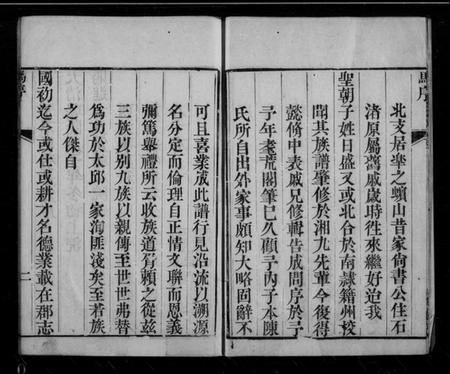 馬序
北支居乐之蠙山昔家尙書公住石
渚原屬舊戚歲時徃來繼好迨我
聖朝子姓日盛又或北合於南隷籍州校
聞其族譜肇修於湘九先輩今復得
懿脩中表戚兄修輯告成問序於予
予年耄荒閣筆巳久顧予內子本陳
氏所自出外家事頗知大略固辭不
可且喜業成此譜行見沿流以溯源
名分定而倫理自正情文聯而恩義
彌篤舉禮所云收族道胥賴之從兹
三族以別九族以親傳至世世弗替
爲功於太邱一家洵匪淺矣至若族
之人傑自
國初迄今或仕或耕才名德業載在郡志
馬序
二